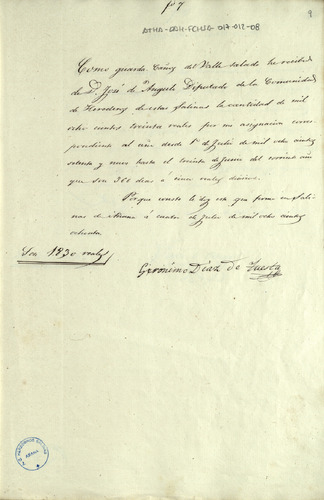 fo 7
9
ATHA-DAH-FCHJA-017-012-08
Como guarda Cañas del Valle salado he recibido
de D. José de Angulo Diputado de la Comunidad
de Herederos de estas Salinas la cantidad de mil
ocho cientos treinta reales por mi asignacion corres
pondiente al año desde 1º de Julio de mil ocho cientos
setenta y nueve hasta el treinta de Junio del corriente año
que son 366 dias á cinco reales diarios.
Para que conste le doy este que firmo en Sali
nas de Añana á cuatro de Julio de mil ocho cientos
ochenta.
Son 1830 reales
Gerónimo Diaz de Tuesta